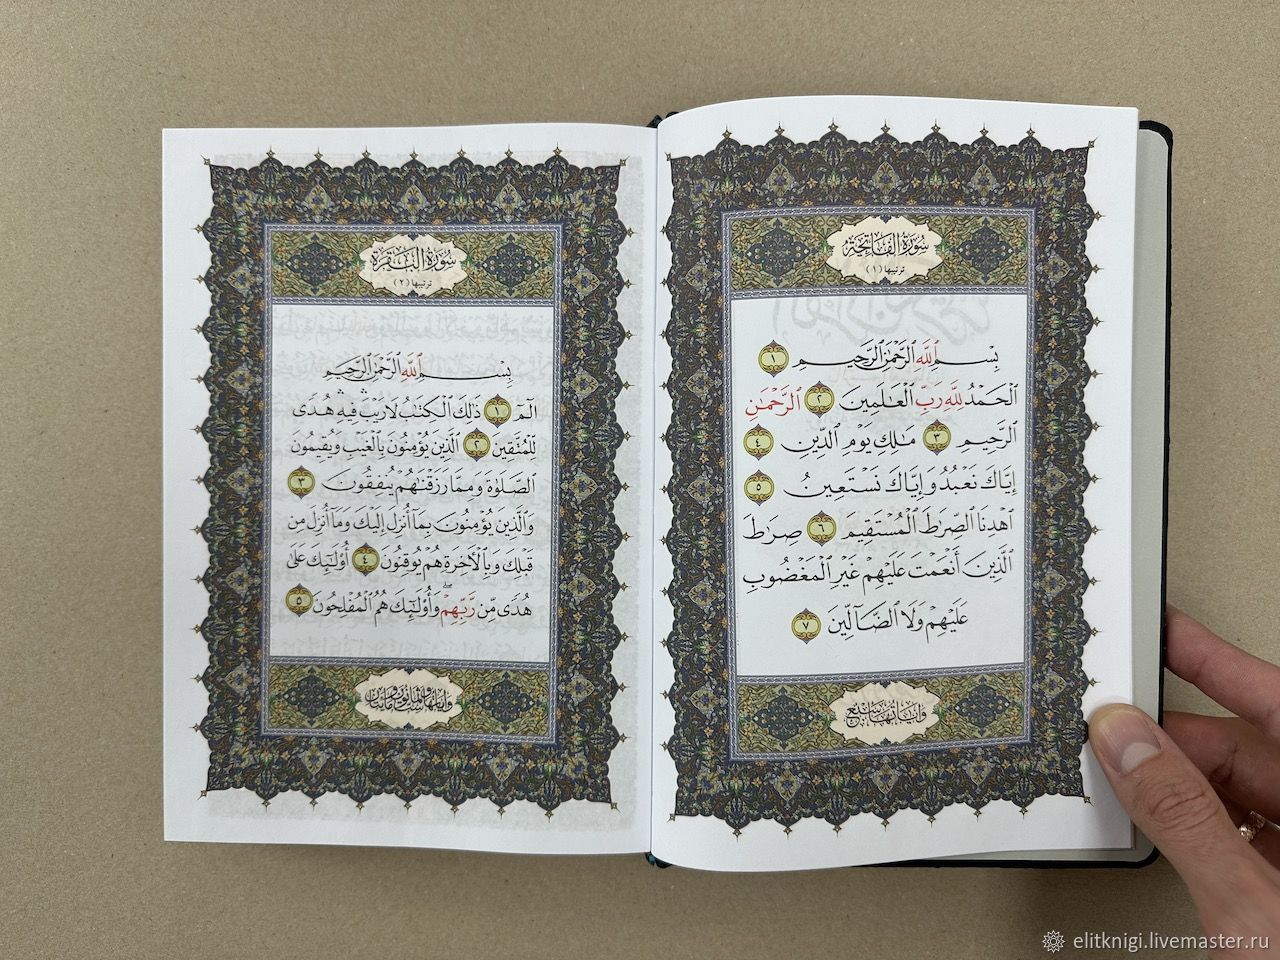 سُورَةُ الفَاتِحَةِ
ترتيبها (١)
بِسْمِ ٱللَّهِ ٱلرَّحْمَٰنِ ٱلرَّحِيمِ ١
ٱلْحَمْدُ لِلَّهِ رَبِّ ٱلْعَٰلَمِينَ ٢ ٱلرَّحْمَٰنِ
ٱلرَّحِيمِ ٣ مَٰلِكِ يَوْمِ ٱلدِّينِ ٤
إِيَّاكَ نَعْبُدُ وَإِيَّاكَ نَسْتَعِينُ ٥
ٱهْدِنَا ٱلصِّرَٰطَ ٱلْمُسْتَقِيمَ ٦ صِرَٰطَ
ٱلَّذِينَ أَنْعَمْتَ عَلَيْهِمْ غَيْرِ ٱلْمَغْضُوبِ
عَلَيْهِمْ وَلَا ٱلضَّآلِّينَ ٧
وَآيَاتُهَا سَبْعٌ
سُورَةُ البَقَرَةِ
ترتيبها (٢)
بِسْمِ ٱللَّهِ ٱلرَّحْمَٰنِ ٱلرَّحِيمِ
الٓمٓ ١ ذَٰلِكَ ٱلْكِتَٰبُ لَا رَيْبَ فِيهِ هُدًى
لِّلْمُتَّقِينَ ٢ ٱلَّذِينَ يُؤْمِنُونَ بِٱلْغَيْبِ وَيُقِيمُونَ
ٱلصَّلَوٰةَ وَمِمَّا رَزَقْنَٰهُمْ يُنفِقُونَ ٣
وَٱلَّذِينَ يُؤْمِنُونَ بِمَآ أُنزِلَ إِلَيْكَ وَمَآ أُنزِلَ مِن
قَبْلِكَ وَبِٱلْءَاخِرَةِ هُمْ يُوقِنُونَ ٤ أُو۟لَٰٓئِكَ عَلَىٰ
هُدًى مِّن رَّبِّهِمْ ۖ وَأُو۟لَٰٓئِكَ هُمُ ٱلْمُفْلِحُونَ ٥
وَآيَاتُهَا سِتٌّ وَثَمَانُونَ وَمِائَتَانِ
elitknigi.livemaster.ru